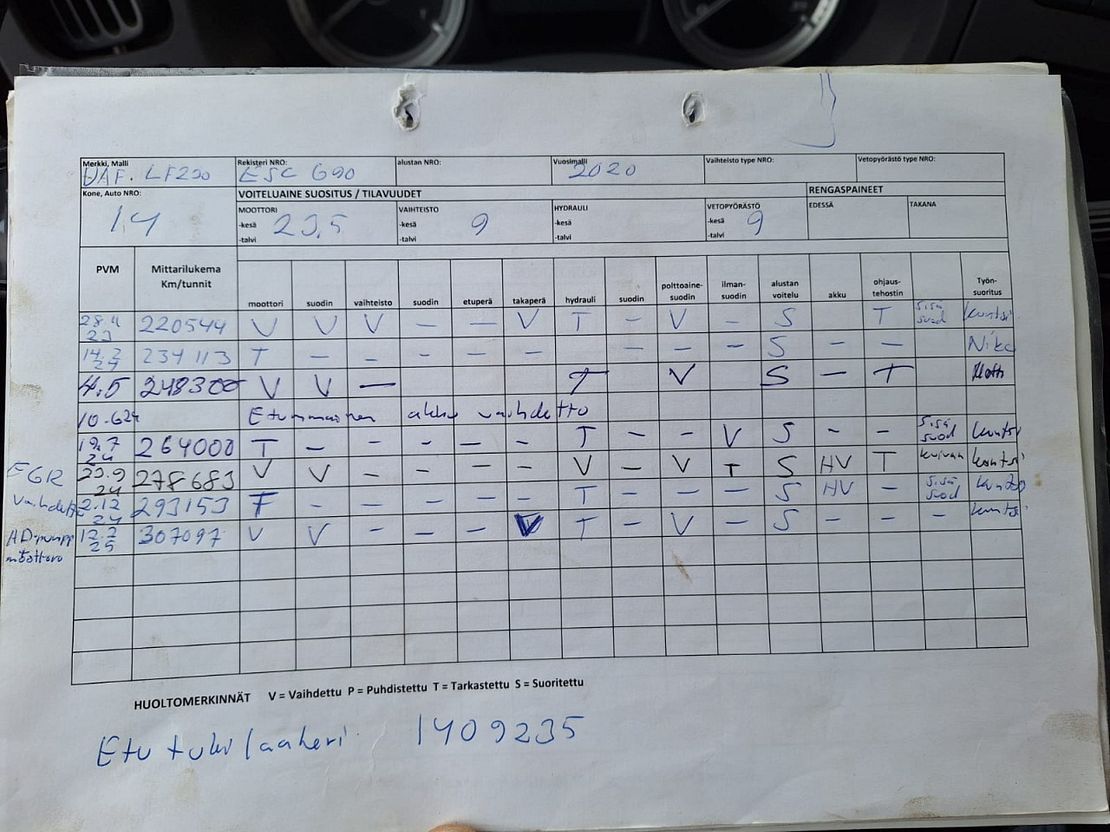 Merkki, Malli Rekisteri NRO: alustan NRO: Vuosimalli Vaihteisto type NRO: Vetopyörästö type NRO:
DAF. LF290 ESC 690 2020
Kone, Auto NRO: VOITELUAINE SUOSITUS / TILAVUUDET RENGASPAINEET
MOOTTORI VAIHTEISTO HYDRAULI VETOPYÖRÄSTÖ EDESSÄ TAKANA
14 -kesä 23,5 -kesä 9 -kesä -kesä 9
-talvi -talvi -talvi -talvi
PVM Mittarilukema Km/tunnit moottori suodin vaihteisto suodin etuperä takaperä hydrauli suodin polttoaine-suodin ilman-suodin alustan voitelu akku ohjaus-tehostin Työn-suoritus
28.11 23 220544 V V V – – V T – V – S T sisä suod kuntsi
14.2 24 234113 T – – – – – – – – – S – – Niko
4.5 248300 V V – T V S – T
10.624 Etummainen akku vaihdettu
19.7 24 264000 T – – – – – T – – V S – – sisä suod kuntsi
EGR 23.9 24 278683 V V – – – – V – V T S HV T kuivan kuntsi
vaihdettu 2.12 24 293153 T – – – – – T – – – S HV – sisä suod kuntso
AD-pumpp moottoro 12.2 25 307097 V V – – – V T – V – S – – – kuntsi
HUOLTOMERKINNÄT V = Vaihdettu P = Puhdistettu T = Tarkastettu S = Suoritettu
Etu tukilaakeri 1409235